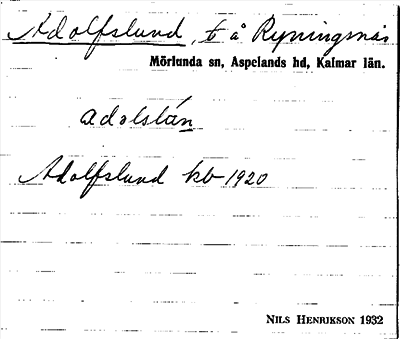 Adolfslund, t å Ryningsnäs
Mörlunda sn, Aspelands hd, Kalmar län.
adolslán
Adolfslund kb 1920
NILS HENRIKSON 1932